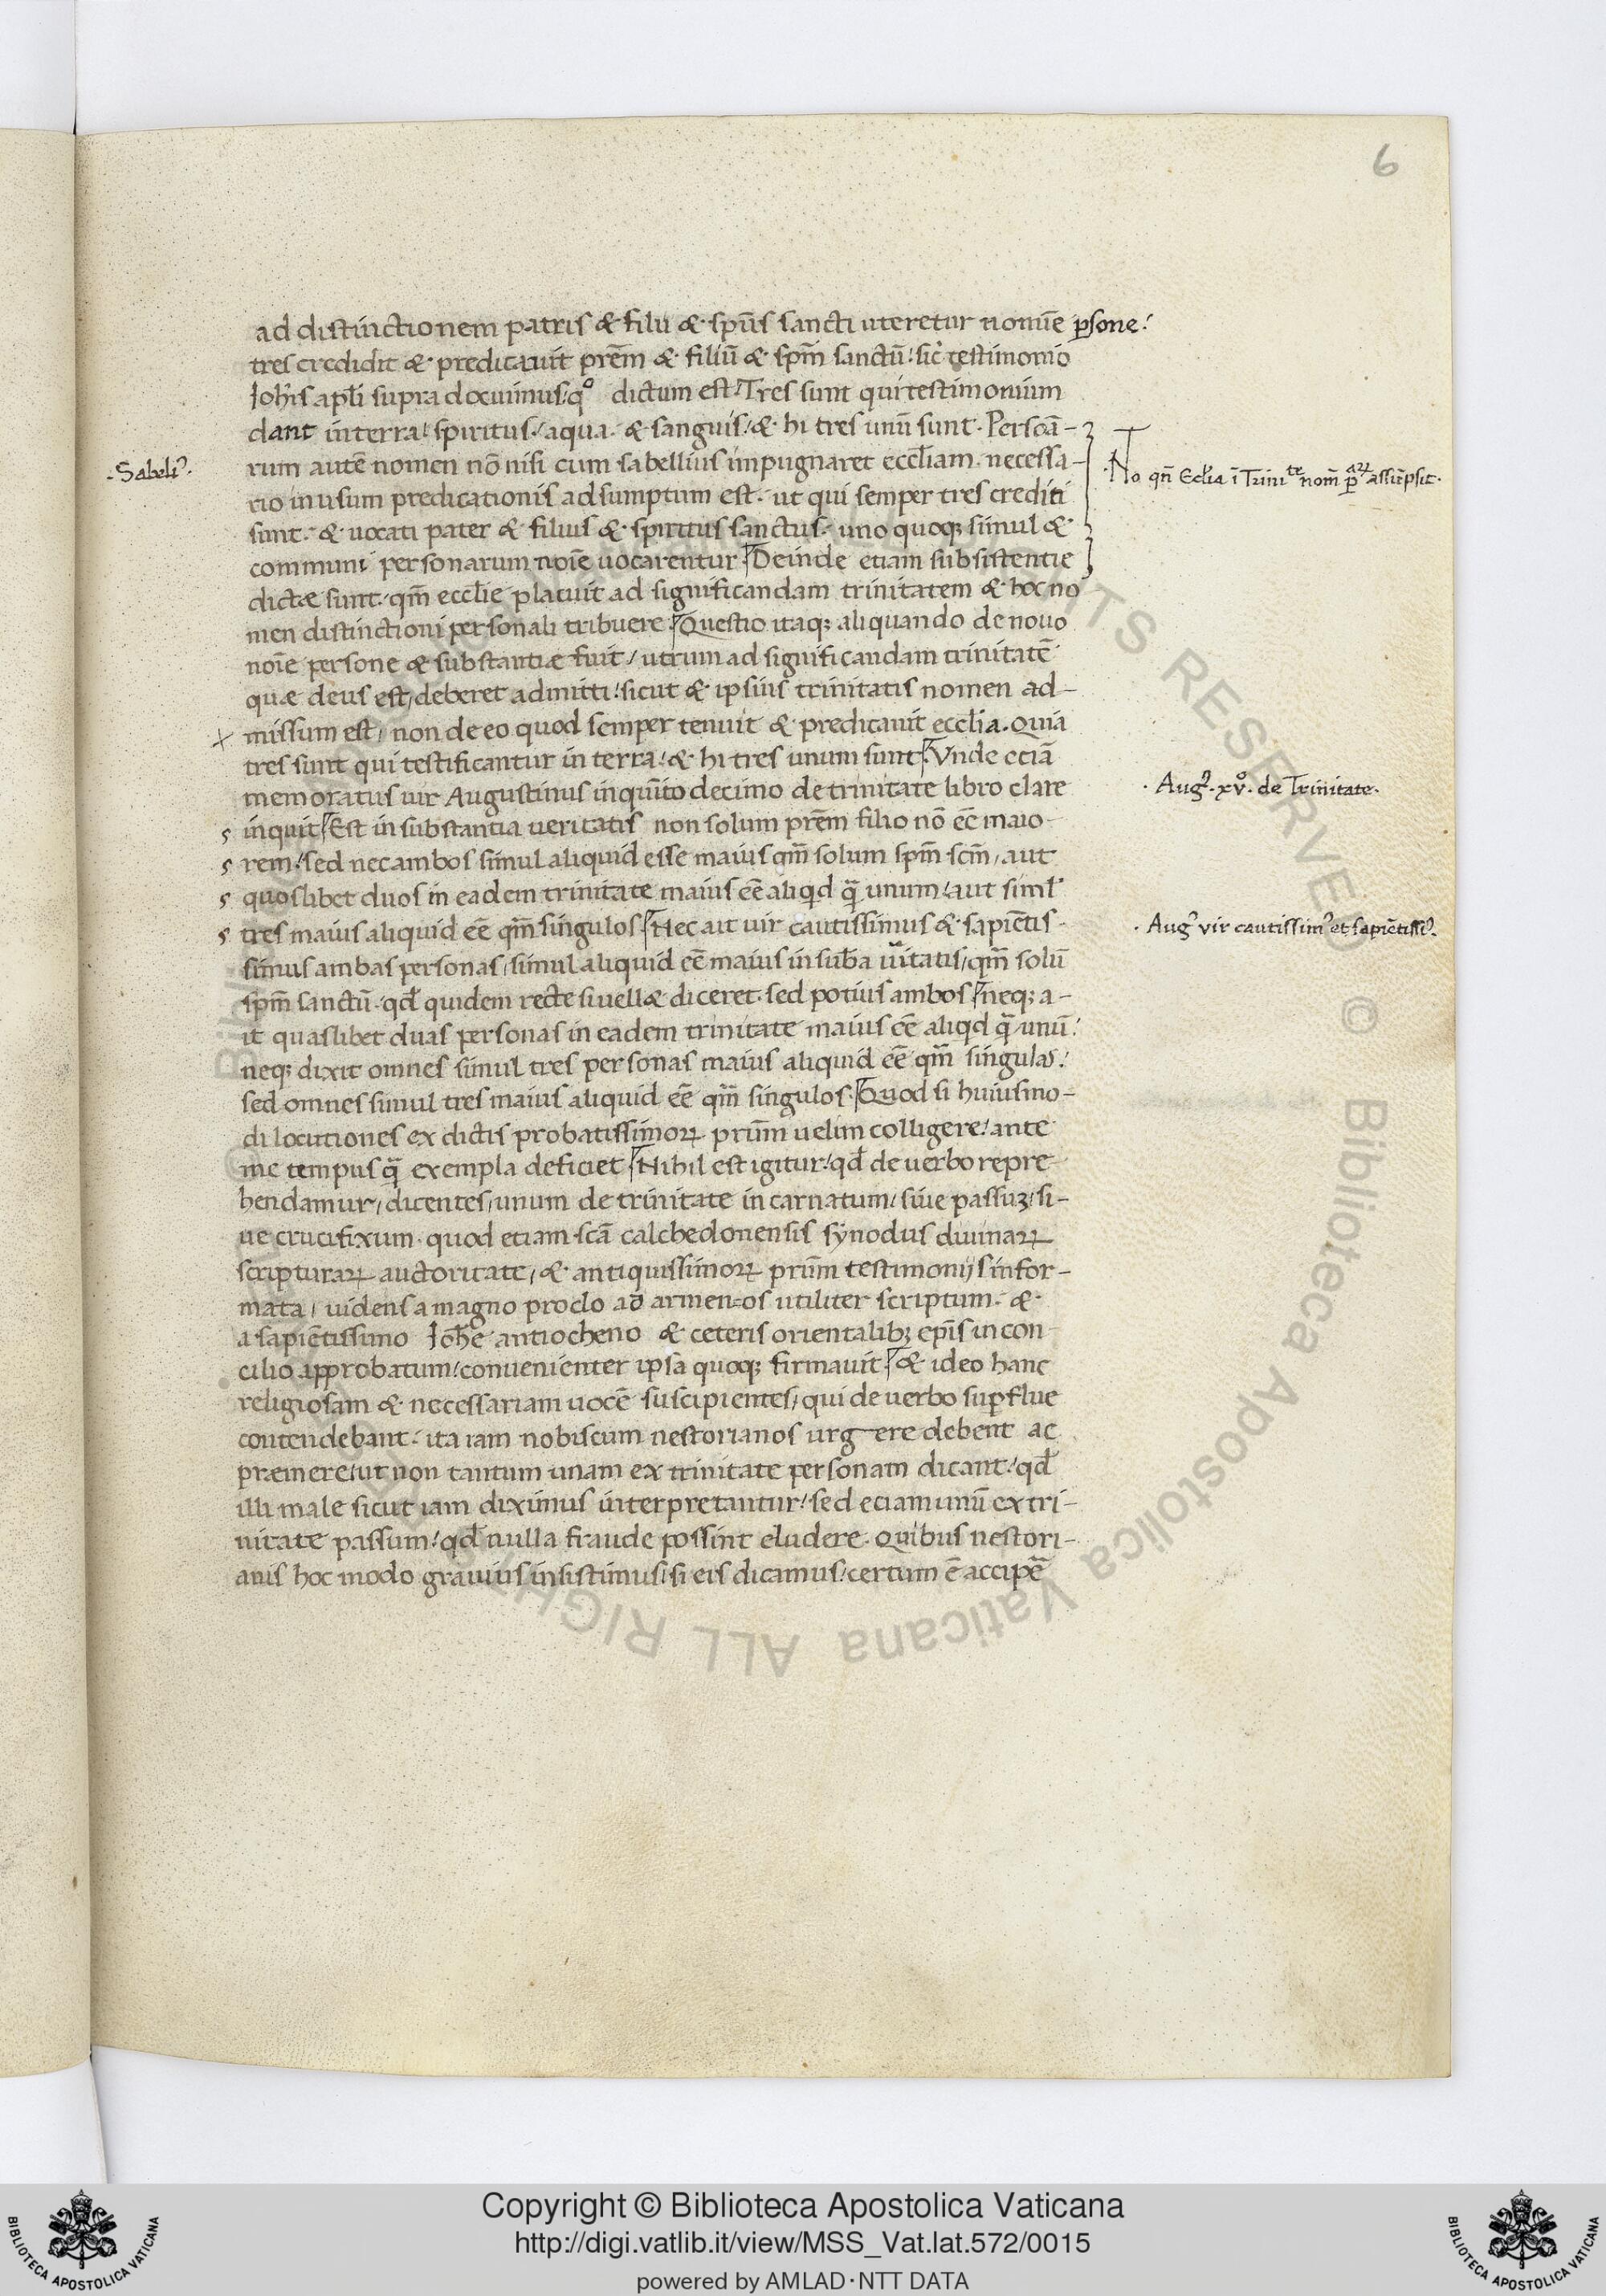 6
ad distinctionem patris & filii & spūs sancti uteretur nomīe psone!
tres credidit & predicauit prēm & filiū & spm̄ sanctū! sic testimonio
Iohis apli supra docuimus! qº dictum est! Tres sunt qui testimonium
dant in terra! spiritus! aqua. & sanguis! & hi tres unū sunt. Persoā-
rum autē nomen nō nisi cum sabellius impugnaret eccliam. necessa-
rio in usum predicationis adsumptum est. ut qui semper tres crediti
sunt. & uocati pater & filius & spiritus sanctus. uno quoq; simul &
communi personarum noīe uocarentur Deinde etiam subsistentie
dictæ sunt. qm̄ ecclie placuit ad significandam trinitatem & hoc no
men distinctioni personali tribuere. Questio itaq; aliquando de nouo
noīe persone & substantiæ fuit/ utrum ad significandam trinitatē
quæ deus est/ deberet admitti! sicut & ipsius trinitatis nomen ad-
missum est/ non de eo quod semper tenuit & predicauit ecclia. Quia
tres sunt qui testificantur in terra! & hi tres unum sunt. Vnde eciā
memoratus uir Augustinus in quīto decimo de trinitate libro clare
inquit Est in substantia ueritatis non solum prēm filio nō eē maio-
rem! sed nec ambos simul aliquid esse maius qm̄ solum spm̄ scm̄/ aut
quoslibet duos in eadem trinitate maius eē aliqid q̄ unum/ aut siml
tres maius aliquid eē qm̄ singulos Nec ait uir cautissimus & sapiētis-
simus ambas personas/ simul aliquid eē maius in suba uitatis/ qm̄ solū
spm̄ sanctū. qd quidem recte si uellæ diceret. sed potius ambos neq; a-
it quaslibet duas personas in eadem trinitate maius eē aliqd q̄ unū!
neq; dixit omnes simul tres personas maius aliquid eē qm̄ singulas!
sed omnes simul tres maius aliquid eē qm̄ singulos. Quod si huiusmo-
di locutiones ex dictis probatissimoꝝ prūm uelim colligere! ante
me tempus q̄ exempla deficiet Nihil est igitur! qd de uerbo repre-
hendamur/ dicentes/ unum de trinitate incarnatum/ siue passuȝ/ si-
ue crucifixum. quod etiam scā calchedonensis synodus diuinaꝝ
scripturaꝝ auctoritate/ & antiquissimoꝝ prūm testimonijs infor-
mata/ uidens a magno proclo ad armenos utiliter scriptum. &
a sapiētissimo Iohe antiocheno & ceteris orientalibȝ epīs in con-
cilio approbatum! conuenienter ipsa quoq; firmauit. & ideo hanc
religiosam & necessariam uocē suscipientes/ qui de uerbo supflue
contendebant. ita iam nobiscum nestorianos urgere debent ac
præmere/ ut non tantum unam ex trinitate personam dicant! qd
illi male sicut iam diximus interpretantur! sed eciam unū ex tri-
nitate passum! qd nulla fraude possint eludere. Quibus nestori-
anis hoc modo grauius insistimus! si eis dicamus! certum ē accipe
·Sabeli⁹.
·No qn̄ Eclia ī Trinite nom̄ paꝝ assūpsit.
·Aug⁹·xvº· de Trinitate·
·Aug⁹ vir cautissim⁹ et sapiētissi⁹.
Copyright © Biblioteca Apostolica Vaticana
http://digi.vatlib.it/view/MSS_Vat.lat.572/0015
powered by AMLAD·NTT DATA
BIBLIOTECA APOSTOLICA VATICANA
BIBLIOTECA APOSTOLICA VATICANA